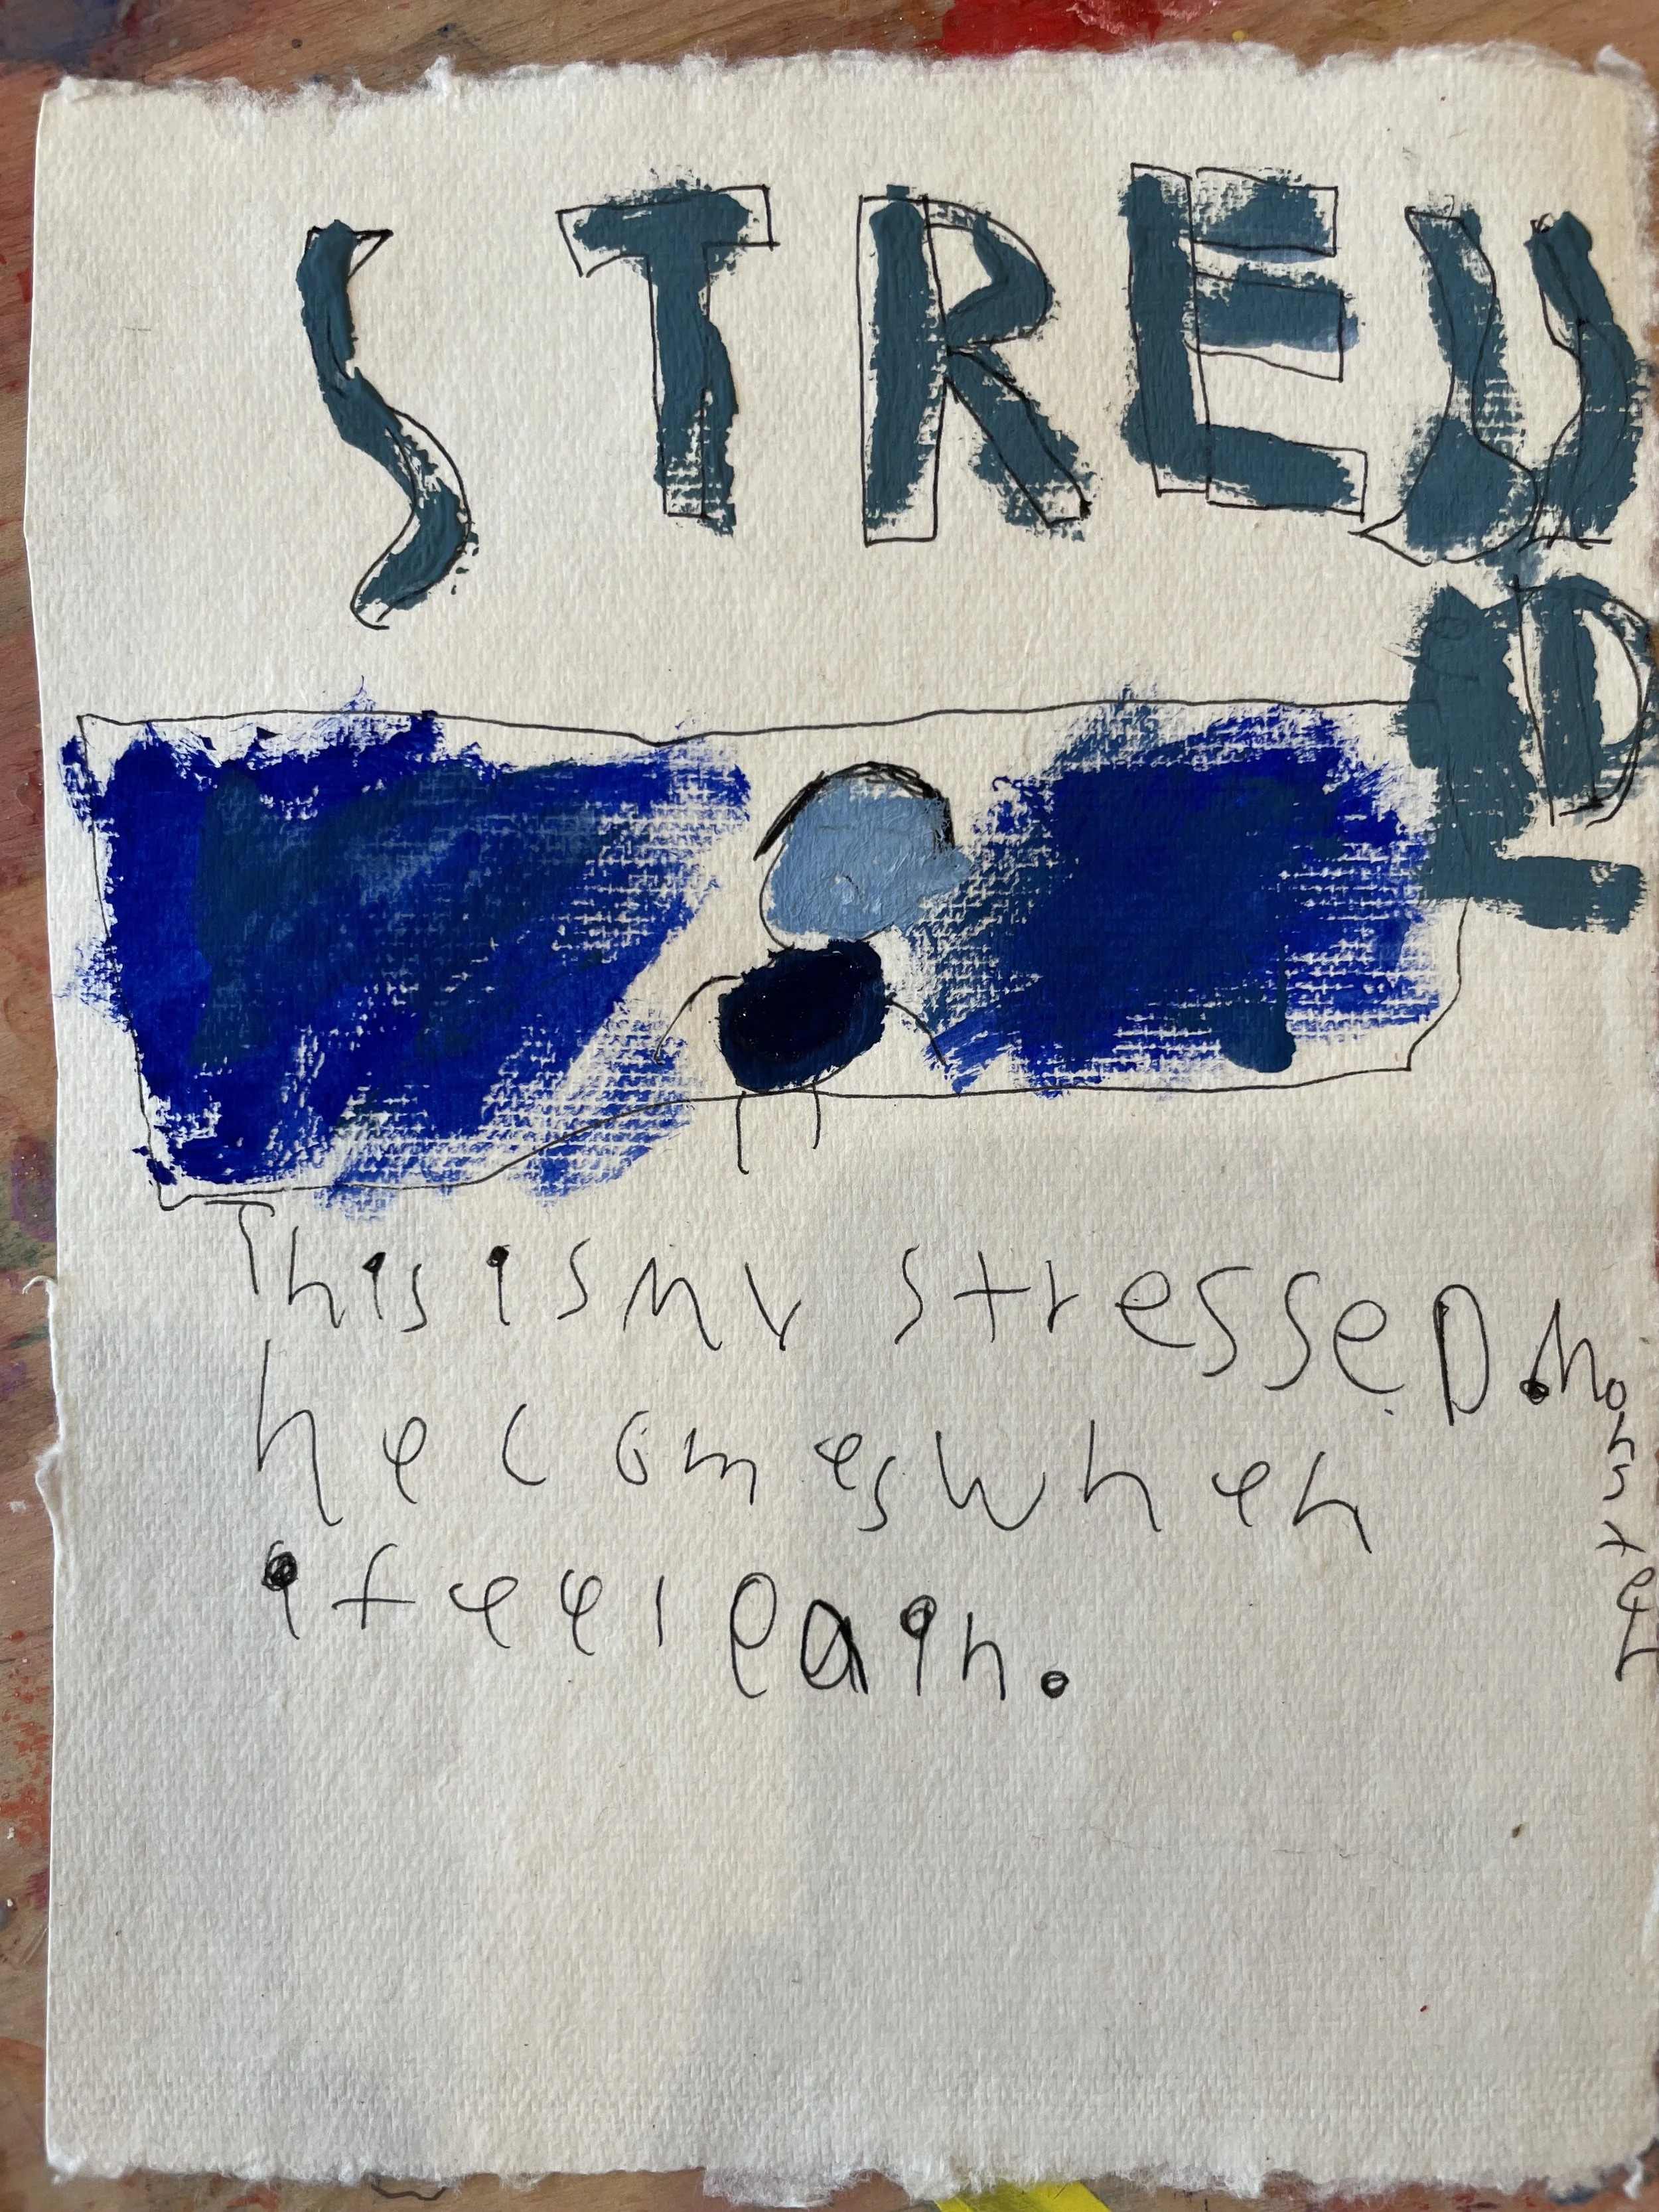 STRESS
ED
This is my stresseD. Monster
he comes when
i feel pain.